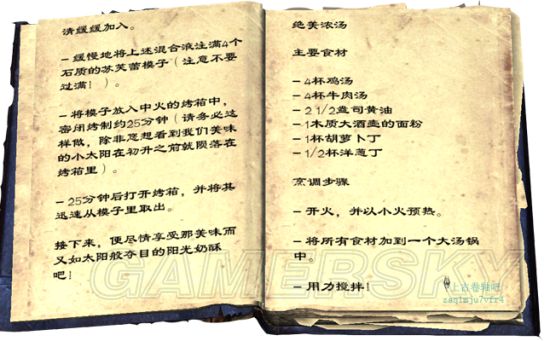 清缓缓加入。
– 缓慢地将上述混合液注满4个
石质的苏芙蕾模子（注意不要
过满！）。
– 将模子放入中火的烤箱中，
密闭烤制约25分钟（请务必这
样做，除非您想看到我们美味
的小太阳在初升之前就陨落在
烤箱里）。
– 25分钟后打开烤箱，并将其
迅速从模子里取出。
接下来，便尽情享受那美味而
又如太阳般夺目的阳光奶酥
吧！
绝美浓汤
主要食材
– 4杯鸡汤
– 4杯牛肉汤
– 2 1/2盎司黄油
– 1木质大酒壶的面粉
– 1杯胡萝卜丁
– 1/2杯洋葱丁
烹调步骤
– 开火，并以小火预热。
– 将所有食材加到一个大汤锅
中。
– 用力搅拌！
GAMERSKY
上古卷轴吧
zaq1mju7vfr4